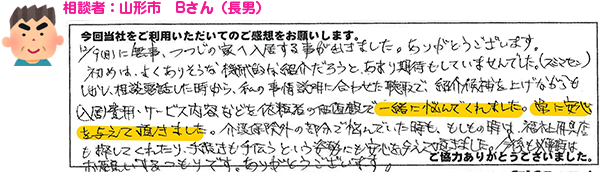 相談者：山形市　Bさん（長男）
今回当社をご利用いただいてのご感想をお願いします。
12/9(日)に無事、つつじの家へ入居する事が出来ました。ありがとうございます。
初めは、よくありそうな機械的な紹介だろうと、あまり期待もしていませんでした。(スミマセン)
しかし、相談電話した時から、私の事情説明に合わせた聴取で、紹介候補を上げながらも
入居費用・サービス内容などを依頼者の価値観で一緒に悩んでくれました。常に安心
を与えて頂きました。介護保険外の部分で悩んでいた時も、もしもの時は、福祉用具店
も探してくれたり、手続きも手伝うという姿勢にも安心を与えて頂きました。今後も必要時は
お願いするつもりです。ありがとうございます。
ご協力ありがとうございました。